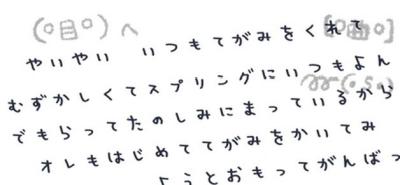 (°目°)へ
やいやい いつもてがみをくれて
むずかしくてスプリングにいつもよん
でもらってたのしみにまっているから
オレもはじめててがみをかいてみ
ようとおもってがんばっ